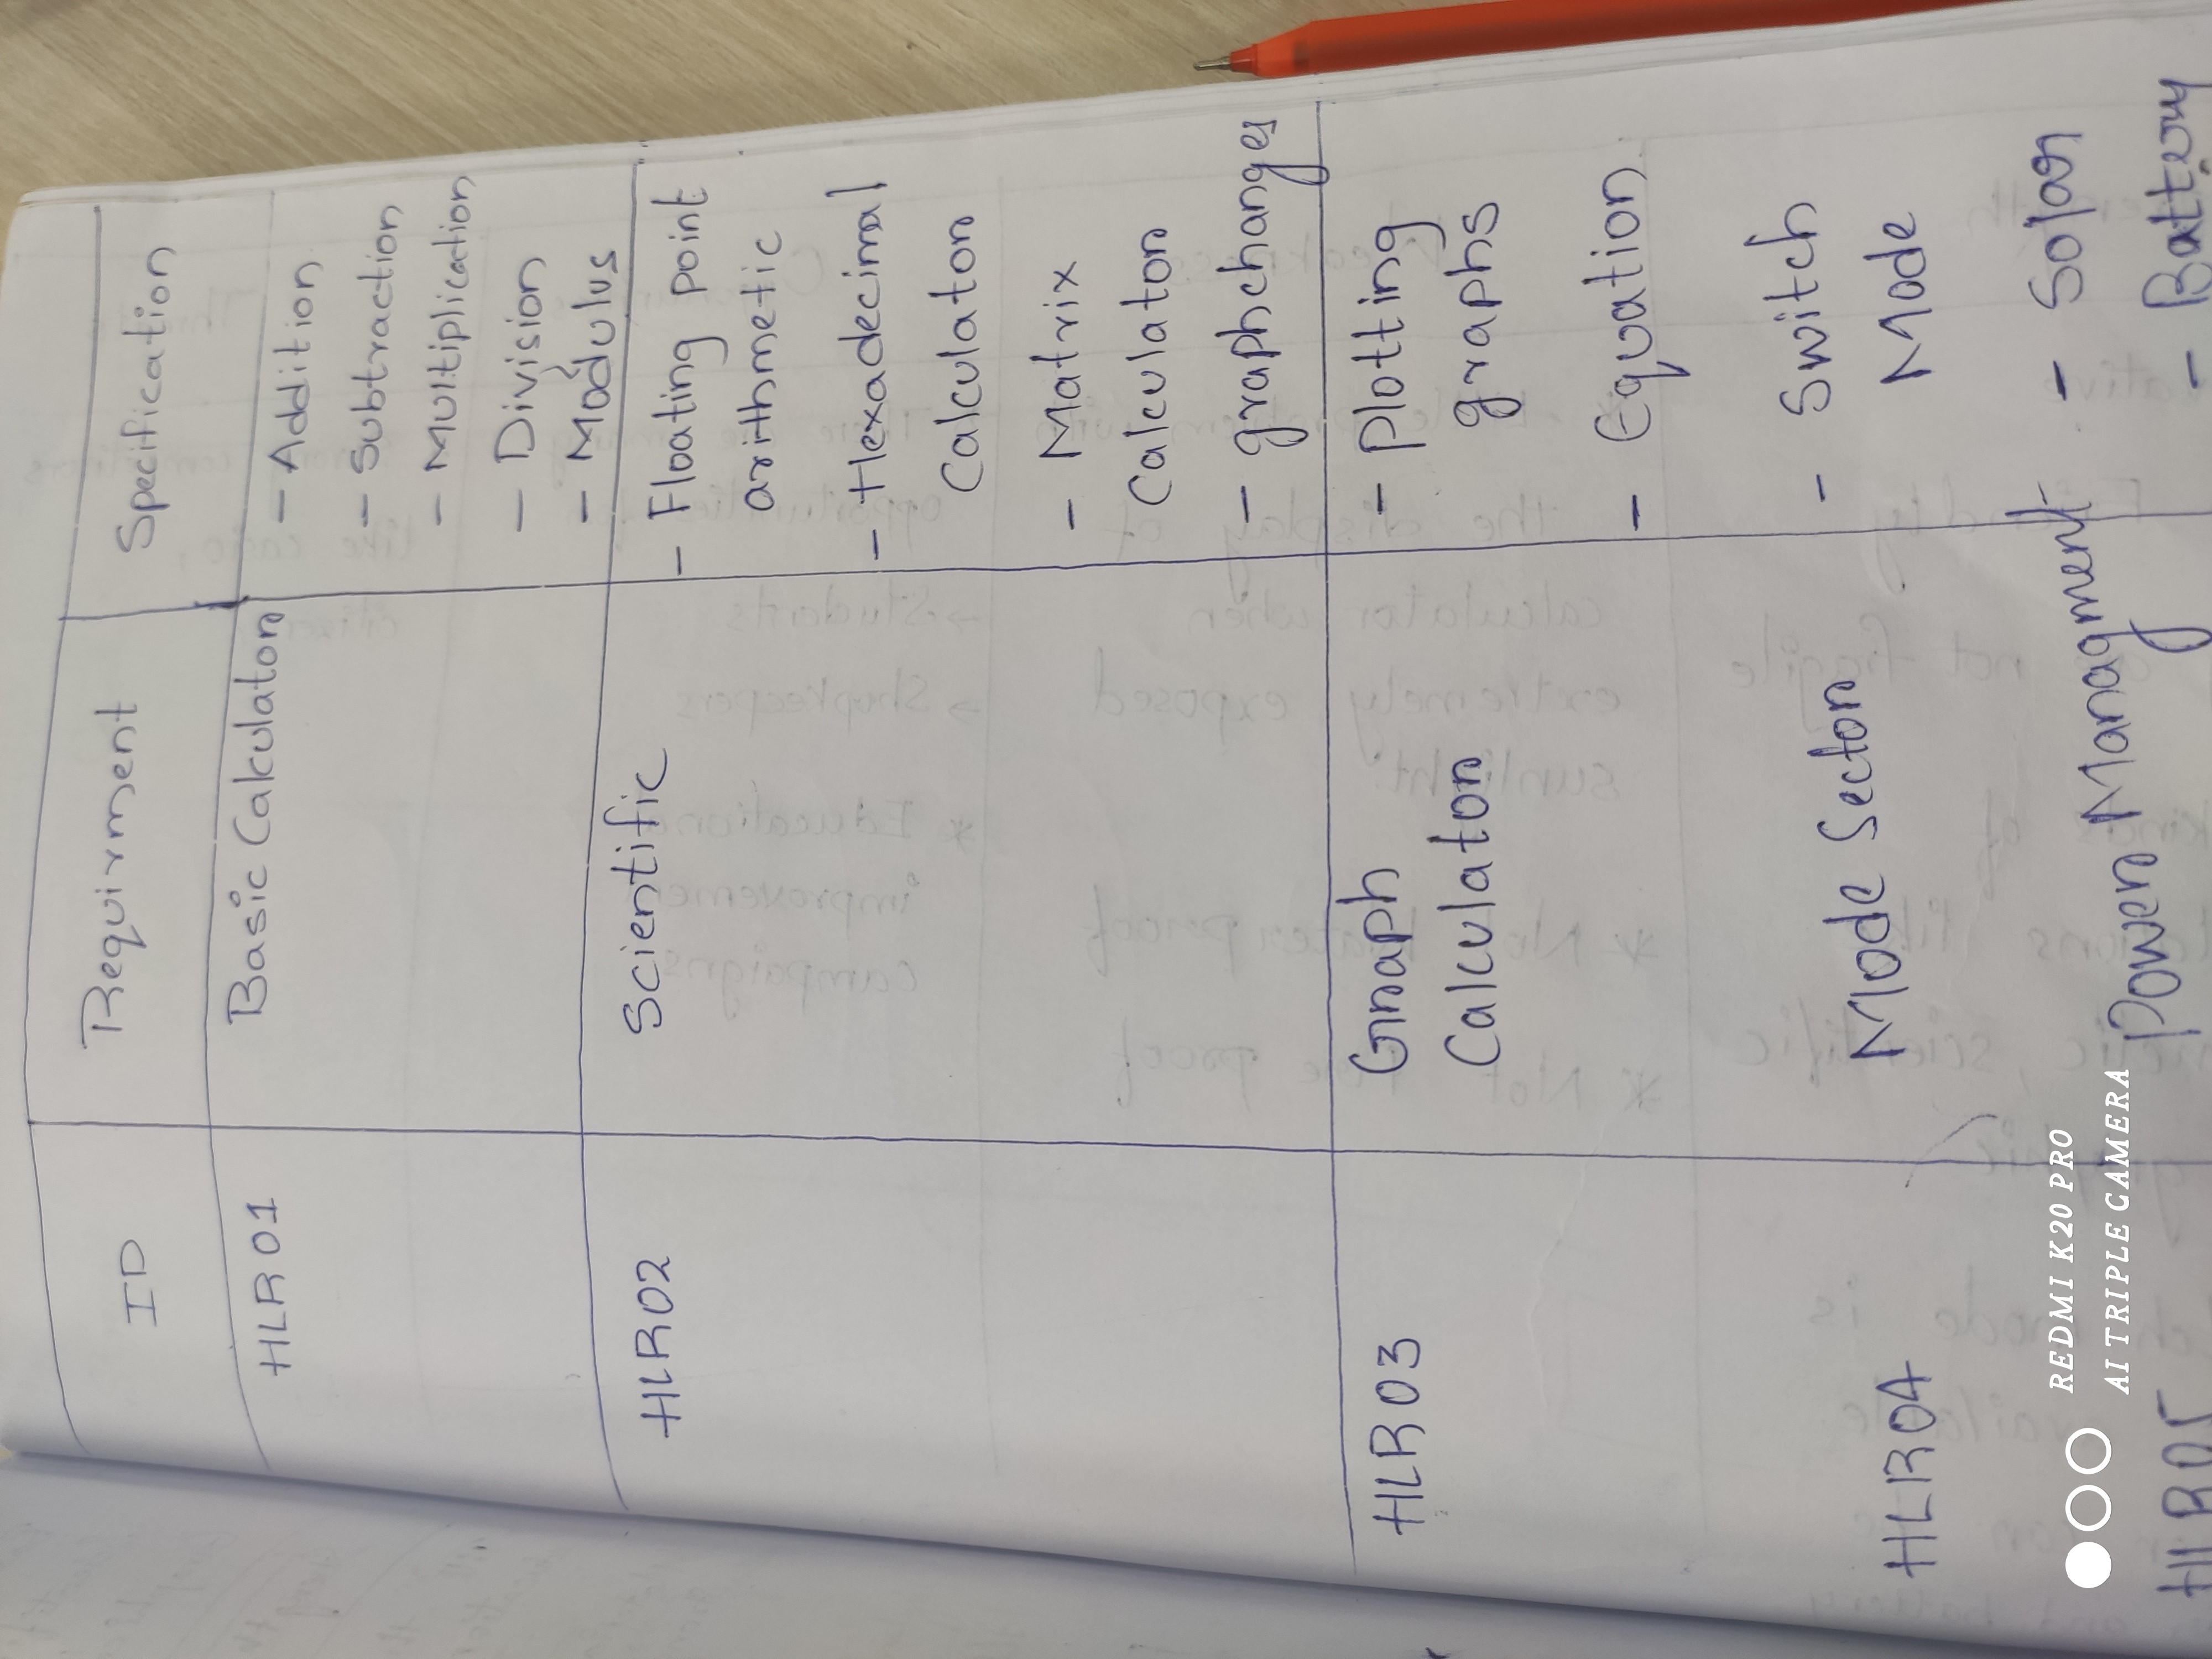 ID Requirment Specification
HLR01 Basic Calculator - Addition
- Subtraction
- Multiplication
- Division
- Modulus
HLR02 Scientific - Floating point
arithmetic
- Hexadecimal
Calculator
- Matrix
Calculator
- graphchanges
HLR03 Graph - Plotting
Calculator graphs
- Equation
HLR04 Mode Sector - Switch
Mode
HLR05 Power Managment - Solar
- Battery
REDMI K20 PRO
AI TRIPLE CAMERA